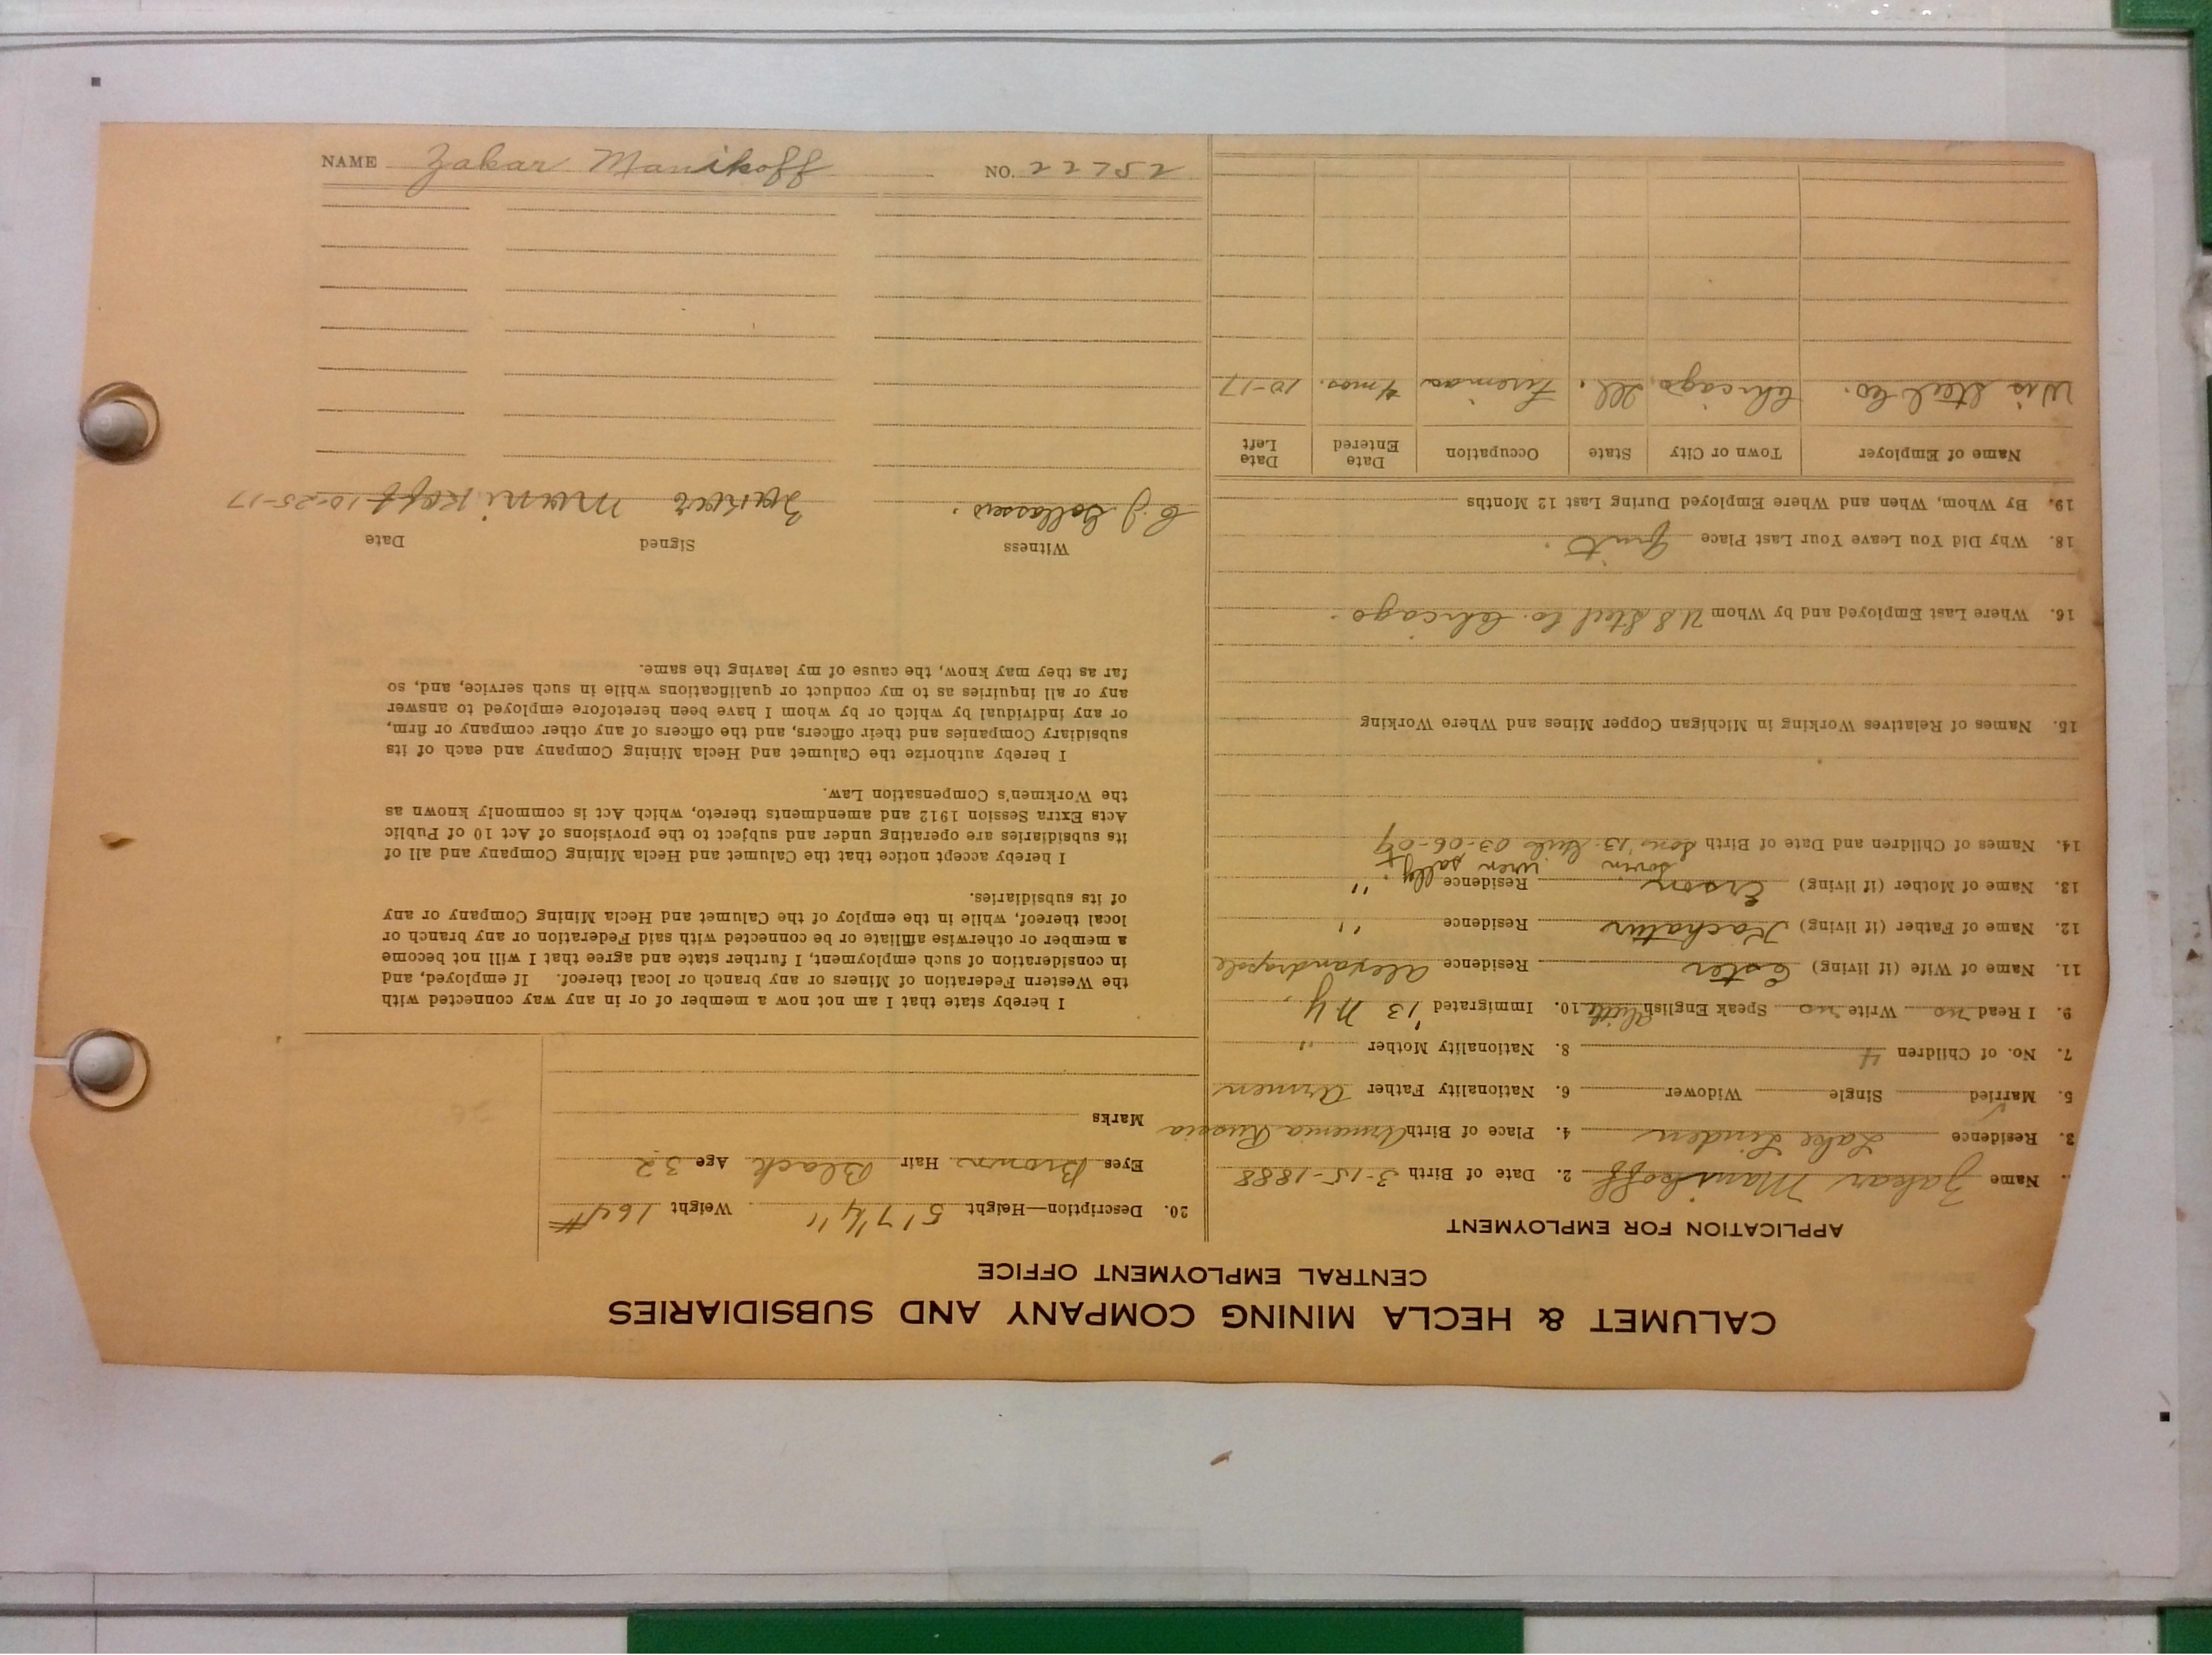 CALUMET & HECLA MINING COMPANY AND SUBSIDIARIES
CENTRAL EMPLOYMENT OFFICE
APPLICATION FOR EMPLOYMENT
Name Zakar Manikoff 2. Date of Birth 3-15-1888
3. Residence Lake Linden 4. Place of Birth Armenia Russia
5. Married ✓ Single Widower 6. Nationality Father Armen
7. No. of Children 4 8. Nationality Mother "
9. I Read no Write no Speak English little 10. Immigrated '13 N.Y.
11. Name of Wife (if living) Ester Residence Alexandrapole
12. Name of Father (if living) Kachatur Residence "
13. Name of Mother (if living) Residence "
14. Names of Children and Date of Birth sons '13 03-06-09
15. Names of Relatives Working in Michigan Copper Mines and Where Working
16. Where Last Employed and by Whom U S Steel Co. Chicago.
18. Why Did You Leave Your Last Place Quit.
19. By Whom, When and Where Employed During Last 12 Months
Name of Employer Town or City State Occupation Date Entered Date Left
Wis Steel Co. Chicago Ill. Fireman 4 mos. 10-17
20. Description—Height 5' 7 1/4" Weight 164#
Eyes Brown Hair Black Age 32
Marks
I hereby state that I am not now a member of or in any way connected with
the Western Federation of Miners or any branch or local thereof. If employed, and
in consideration of such employment, I further state and agree that I will not become
a member or otherwise affiliate or be connected with said Federation or any branch or
local thereof, while in the employ of the Calumet and Hecla Mining Company or any
of its subsidiaries.
I hereby accept notice that the Calumet and Hecla Mining Company and all of
its subsidiaries are operating under and subject to the provisions of Act 10 of Public
Acts Extra Session 1912 and amendments thereto, which Act is commonly known as
the Workmen's Compensation Law.
I hereby authorize the Calumet and Hecla Mining Company and each of its
subsidiary Companies and their officers, and the officers of any other company or firm,
or any individual by which or by whom I have been heretofore employed to answer
any or all inquiries as to my conduct or qualifications while in such service, and, so
far as they may know, the cause of my leaving the same.
Witness Signed Date
C. J. 10-25-17
NAME Zakar Manikoff NO. 22752